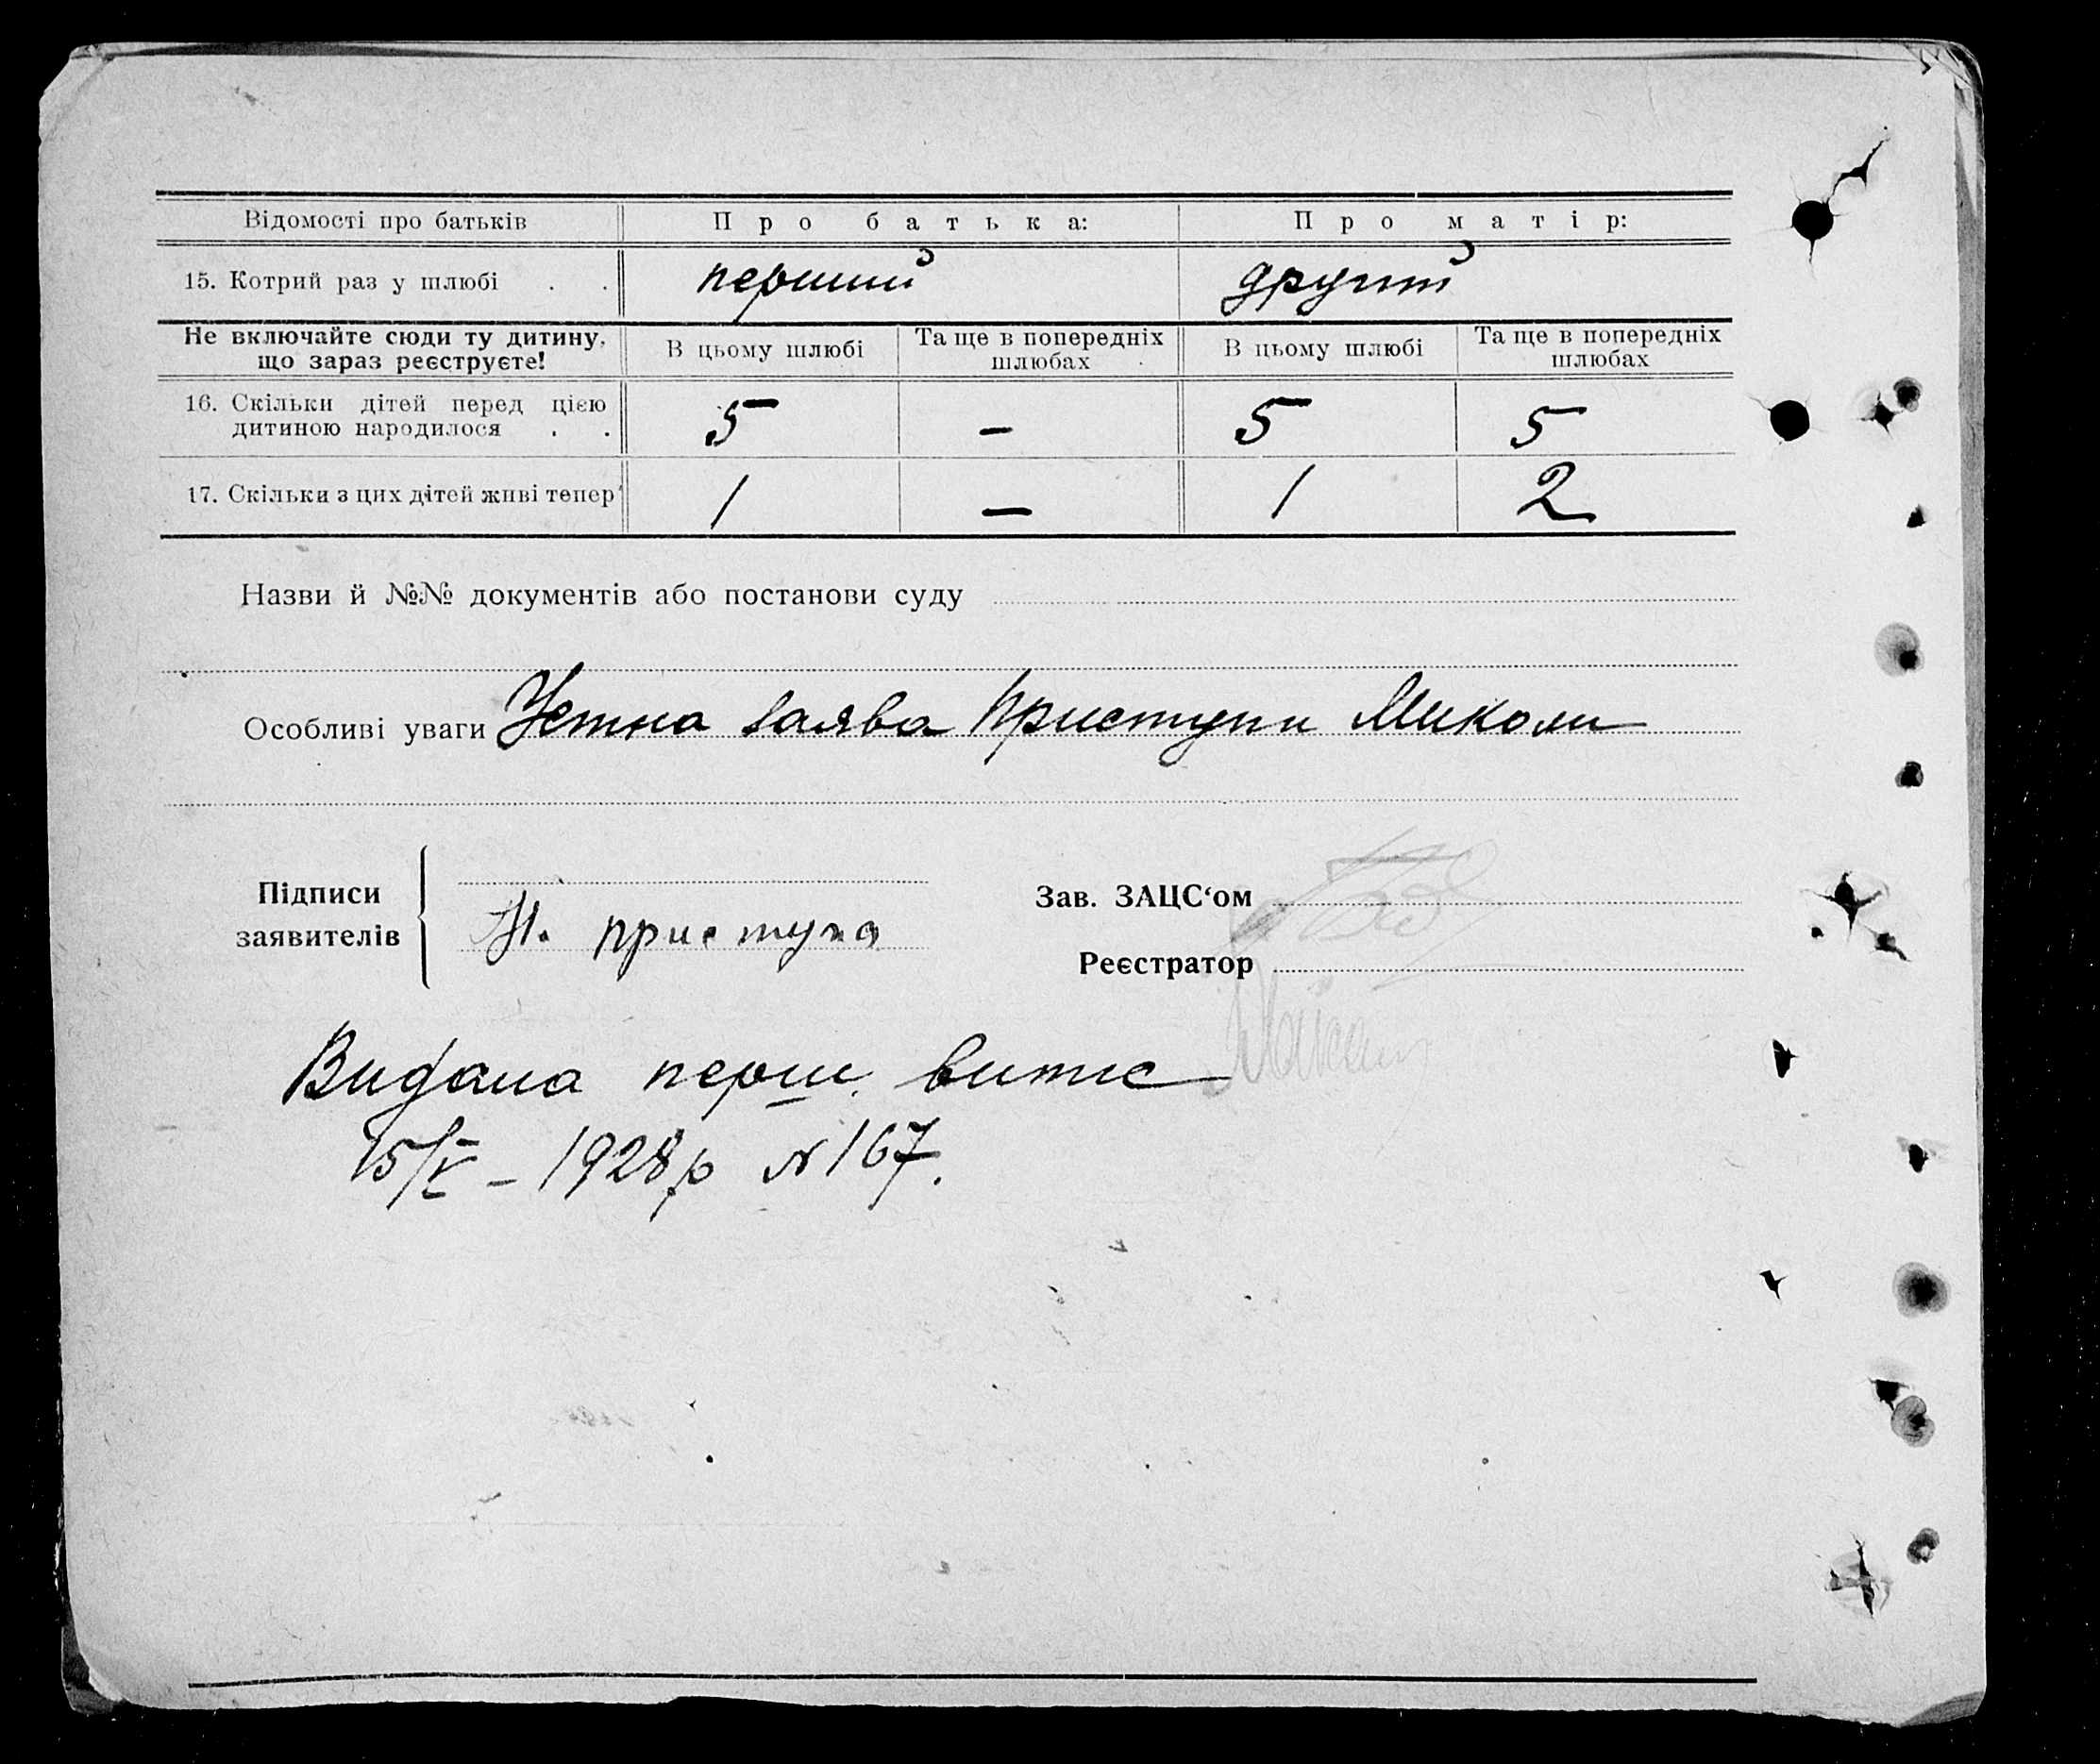 Відомості про батьків Про батька: Про матір:
15. Котрий раз у шлюбі . . перший другий
Не включайте сюди ту дитину, що зараз реєструєте! В цьому шлюбі Та ще в попередніх шлюбах В цьому шлюбі Та ще в попередніх шлюбах
16. Скільки дітей перед цією дитиною народилося . . 5 – 5 5
17. Скільки з цих дітей живі тепер 1 – 1 2
Назви й №№ документів або постанови суду
Особливі уваги Устна заява Приступи Миколи
Підписи заявителів
Н. приступа
Зав. ЗАЦС‘ом
Реєстратор
Видана перш. витис
15/V – 1928р № 167.